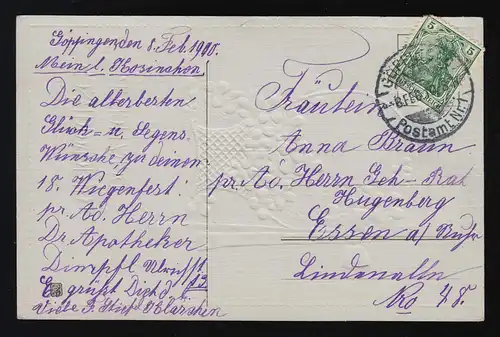 Göppingen den 8. Feb. 1910.
Mein l. Rosinchen
Die allerbesten
Glück- u. Segens
Wünsche zu deinem
18. Wiegenfest!
pr. Ad. Herrn
Dr Apotheker
Dimpfl
Es grüßt Dich d.
Klärchen
Fräulein
Anna Braun
pr. Ad. Herrn Geh-Rat
Hugenberg
Essen a/ Ruhr
Lindenalle
No 48.
5
Postamt Nr. 1